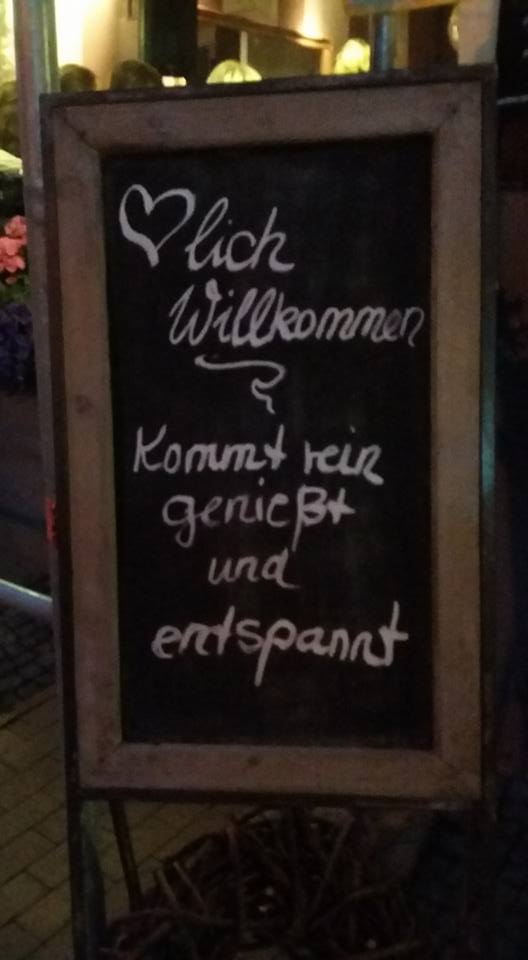 ♡lich
Willkommen
Kommt rein
genießt
und
entspannt